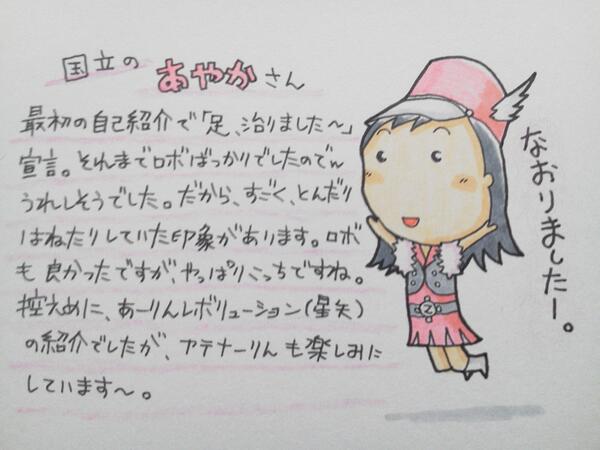 国立の あやかさん
最初の自己紹介で「足、治りました〜」
宣言。それまでロボばっかりでしたのでw
うれしそうでした。だから、すごく、とんだり
はねたりしていた印象があります。ロボ
も良かったですが、やっぱりこっちですね。
控えめに、あーりんレボリューション(星矢)
の紹介でしたが、アテナーりんも楽しみに
しています〜。
なおりましたー。
Z